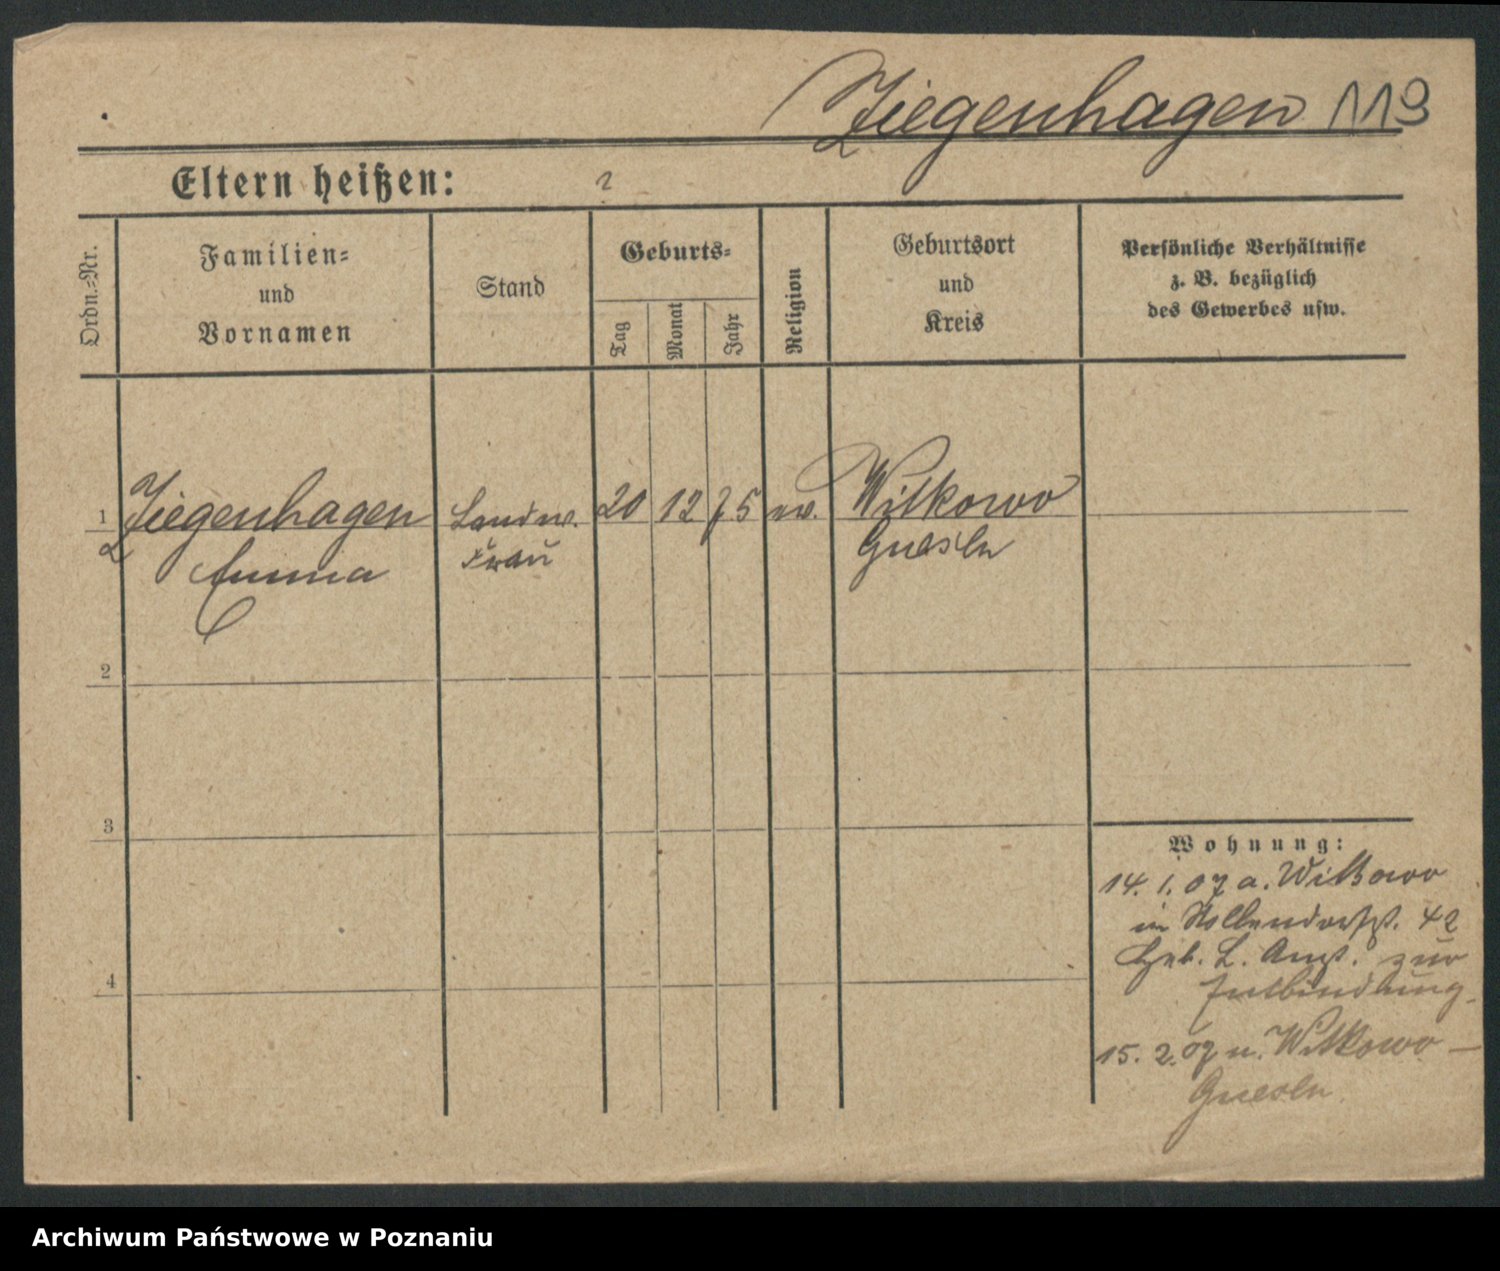 Ziegenhagen 119
Eltern heißen: ?
Ordn.-Nr.
Familien=
und
Vornamen
Stand
Geburts=
Tag
Monat
Jahr
Religion
Geburtsort
und
Kreis
Persönliche Verhältnisse
z. B. bezüglich
des Gewerbes usw.
1 Ziegenhagen Landw. 20 12 75 ev. Witkowo
Emma Frau Gnesen
2
3
4
Wohnung:
14. 1. 07 a. Witkowo
in Nollendorfst. 42
Heb. L. Anst. zur
Entbindung.
15. 2. 07 n. Witkowo –
Gnesen.
Archiwum Państwowe w Poznaniu